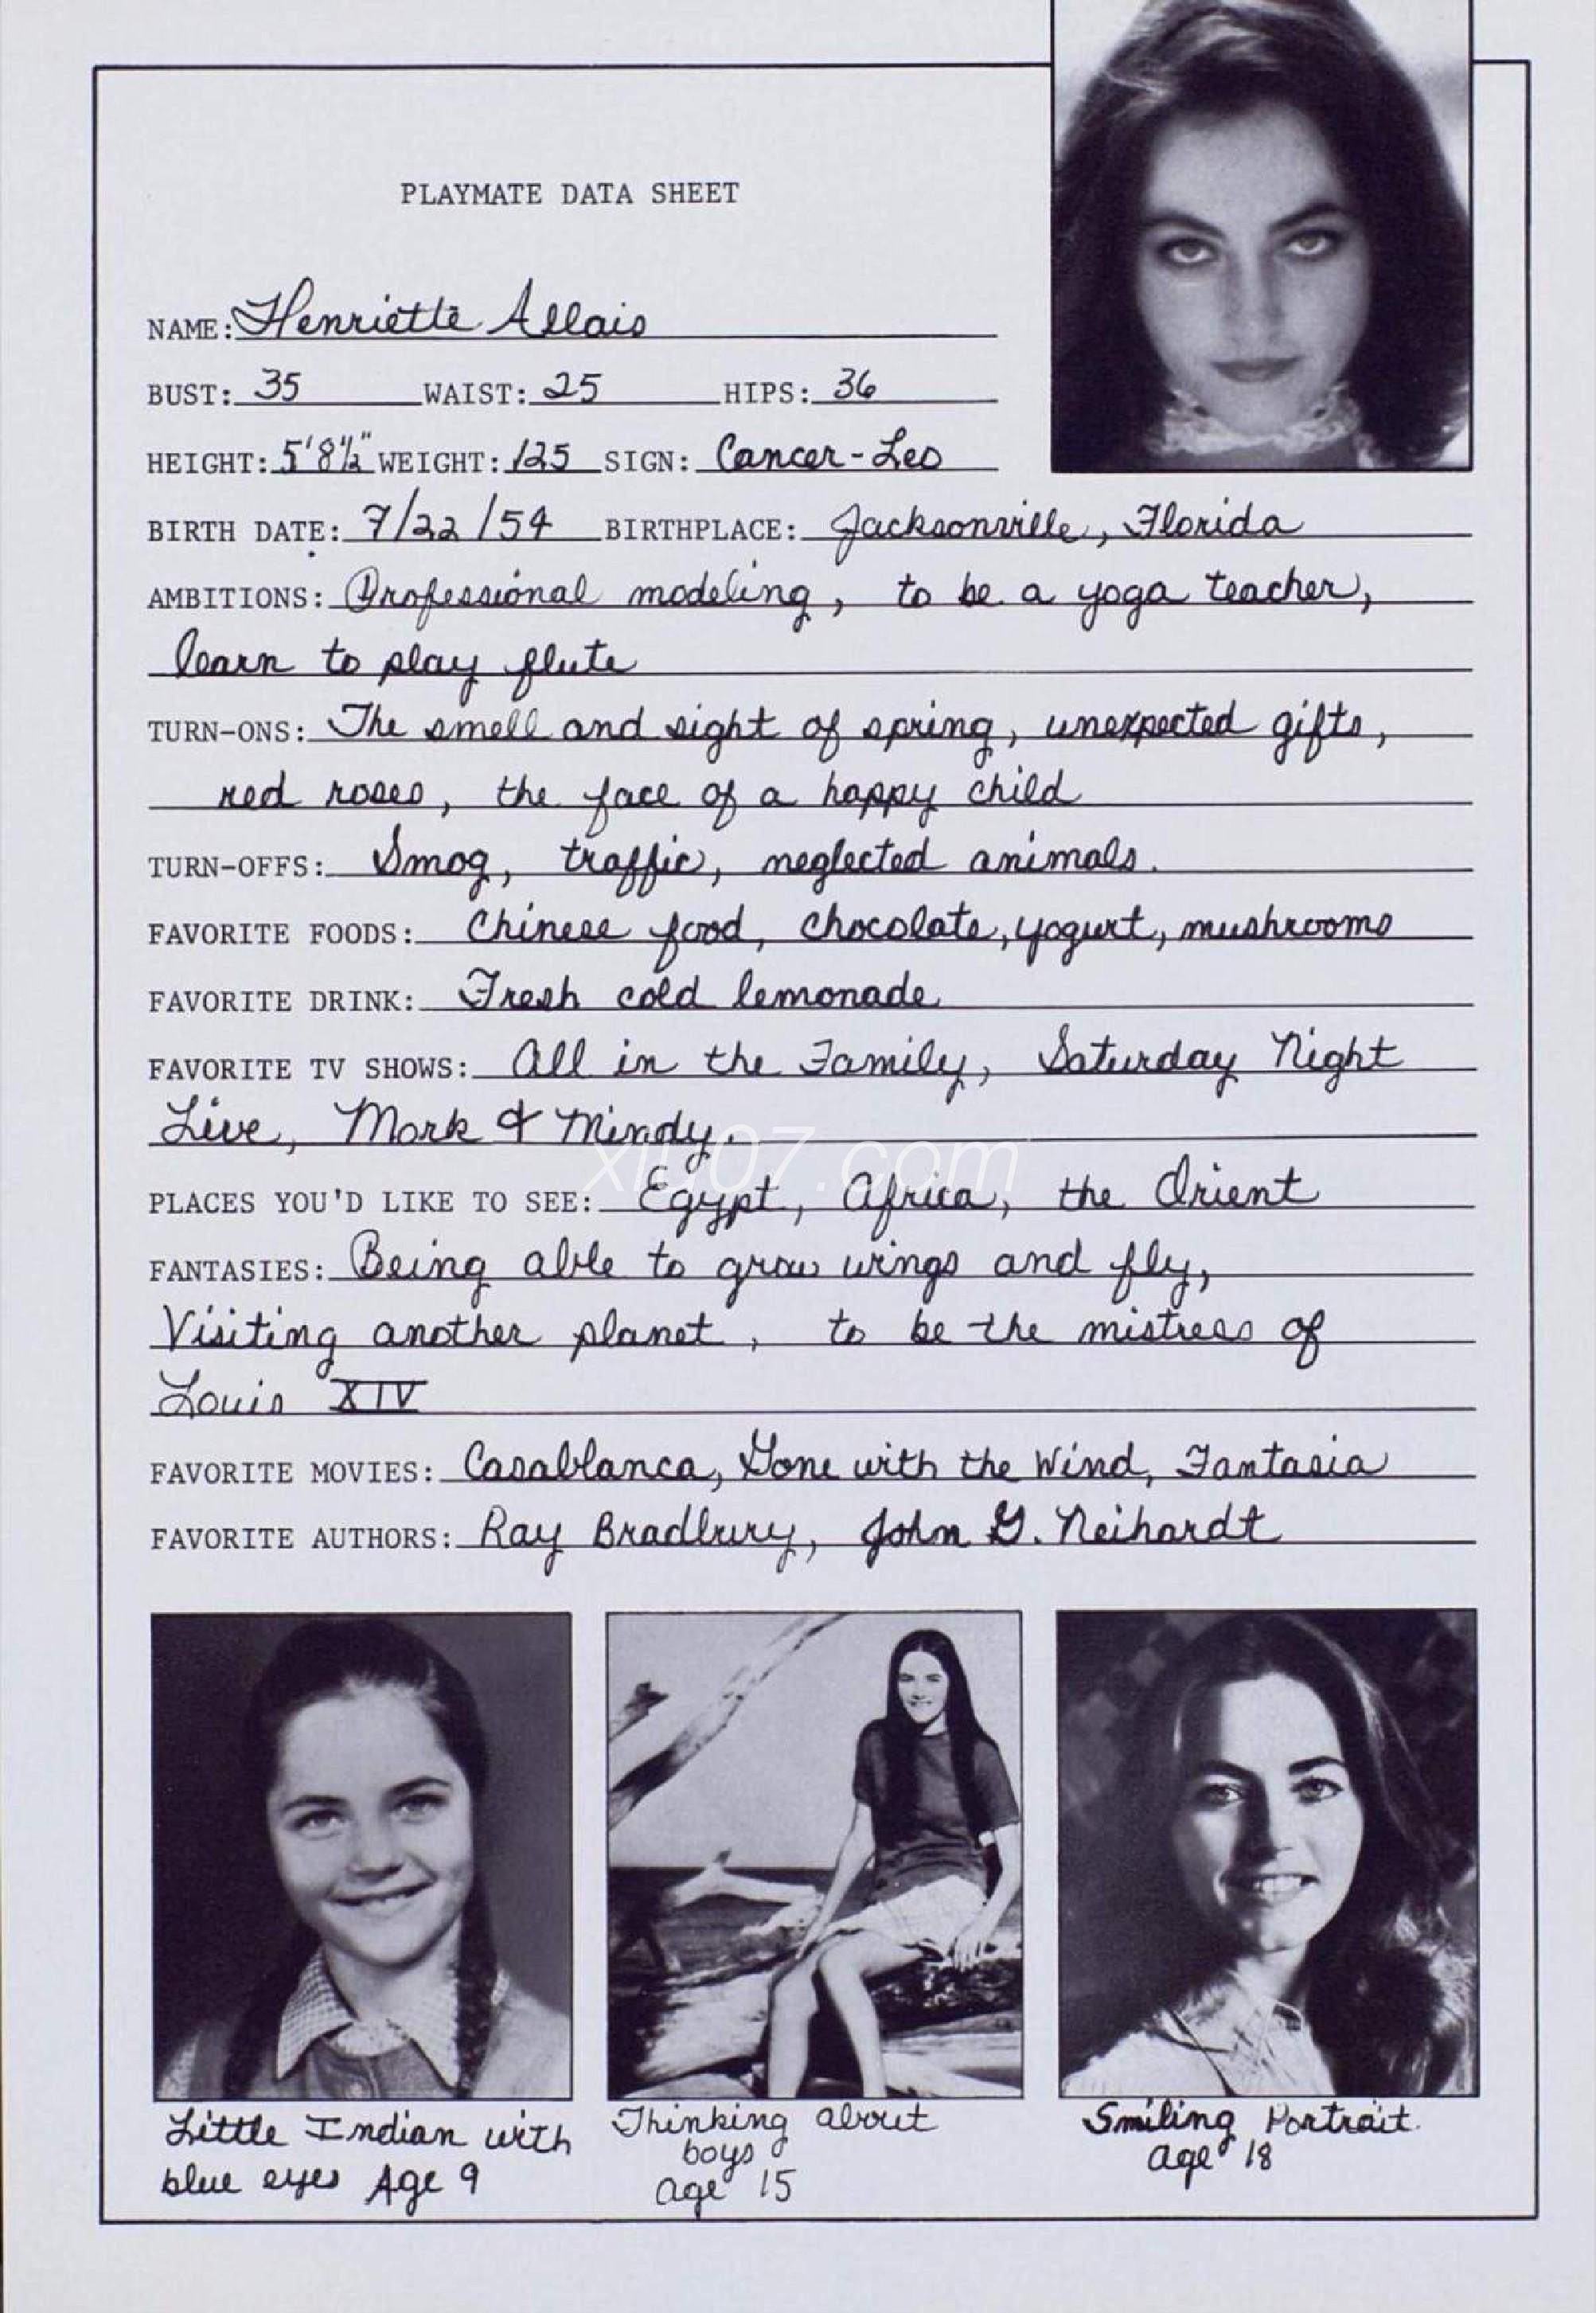 PLAYMATE DATA SHEET
NAME: Henriette Allais
BUST: 35 WAIST: 25 HIPS: 36
HEIGHT: 5'8½" WEIGHT: 125 SIGN: Cancer-Leo
BIRTH DATE: 7/22/54 BIRTHPLACE: Jacksonville, Florida
AMBITIONS: Professional modeling, to be a yoga teacher,
learn to play flute
TURN-ONS: The smell and sight of spring, unexpected gifts,
red roses, the face of a happy child
TURN-OFFS: Smog, traffic, neglected animals.
FAVORITE FOODS: Chinese food, chocolate, yogurt, mushrooms
FAVORITE DRINK: Fresh cold lemonade
FAVORITE TV SHOWS: All in the Family, Saturday Night
Live, Mork & Mindy.
xiu07.com
PLACES YOU'D LIKE TO SEE: Egypt, Africa, the Orient
FANTASIES: Being able to grow wings and fly,
Visiting another planet, to be the mistress of
Louis XIV
FAVORITE MOVIES: Casablanca, Gone with the Wind, Fantasia
FAVORITE AUTHORS: Ray Bradbury, John G. Neihardt
Little Indian with
blue eyes Age 9
Thinking about
boys
age 15
Smiling Portrait.
age 18